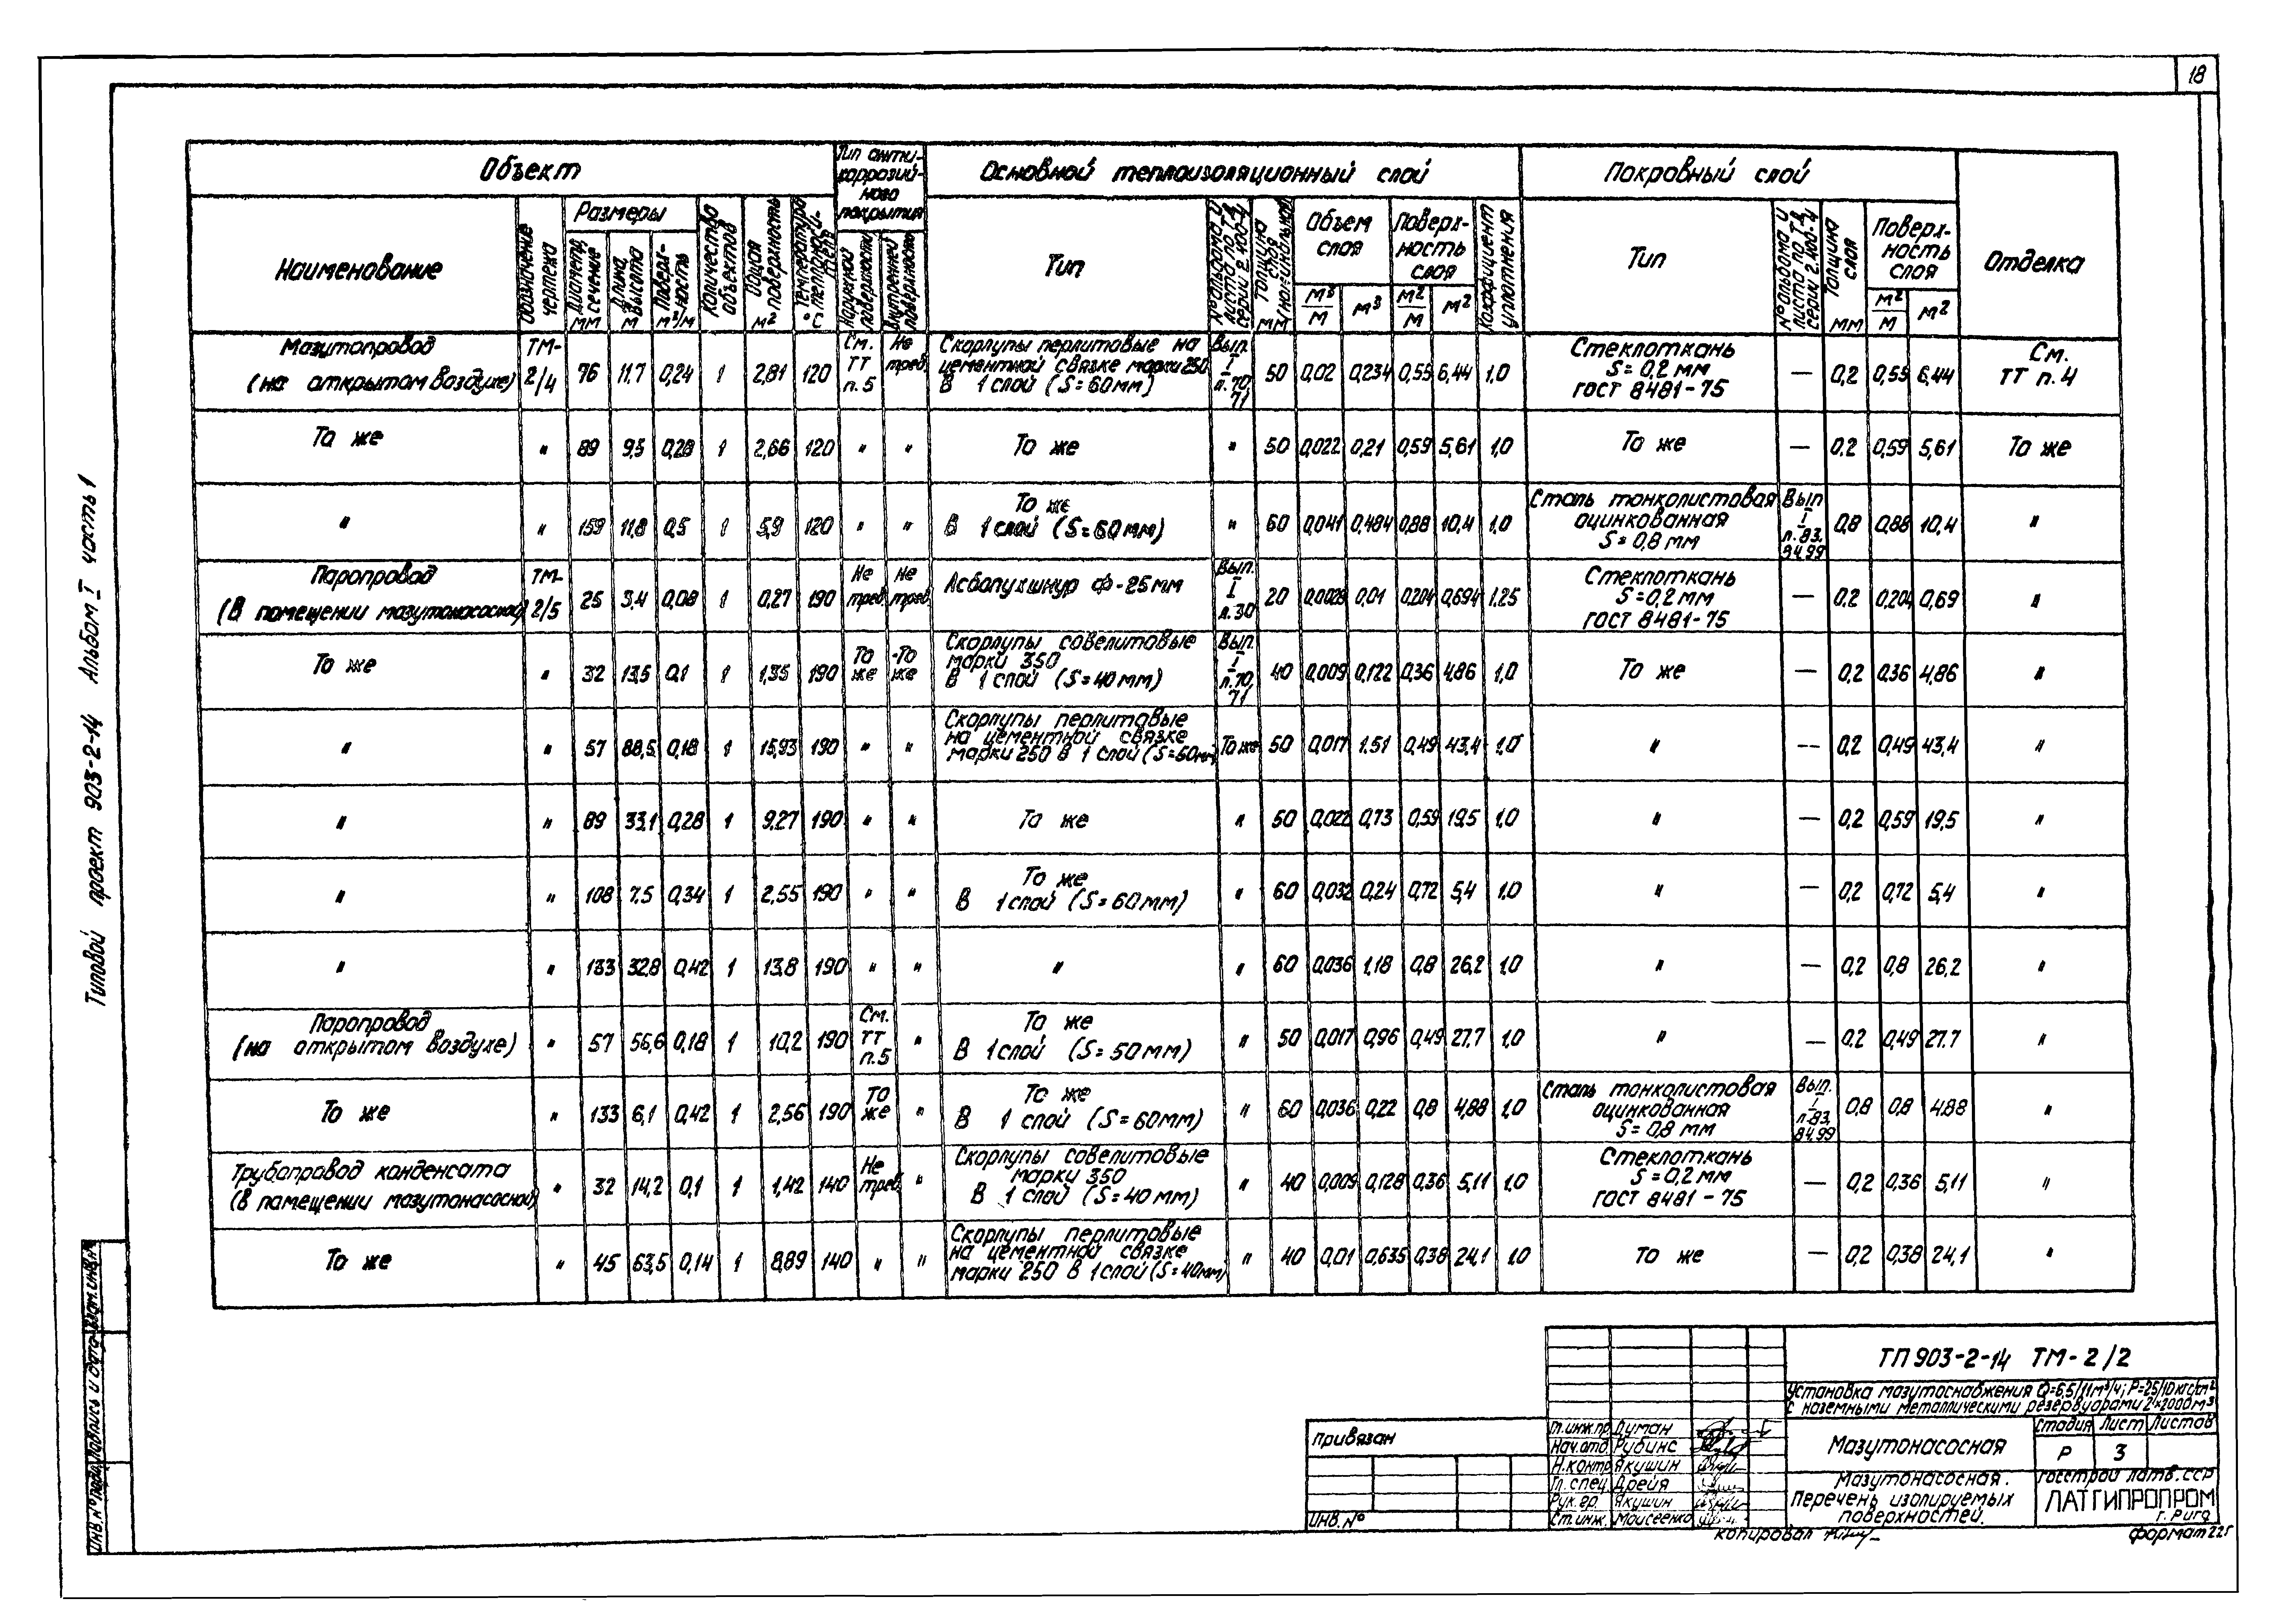 18
Типовой проект 903-2-14 Альбом I часть 1
Объект
Тип анти-
коррозий-
ного
покрытия
Основной теплоизоляционный слой
Покровный слой
Отделка
Наименование
Обозначение
чертежа
Размеры
Диаметр,
сечение
мм
Длина,
высота
м
Поверх-
ность
м²/м
Количество
объектов
Общая
поверхность
м²
Температура
теплоноси-
теля
°С
Наружной
поверхности
Внутренней
поверхности
Тип
№ альбома и
листа по ТД
серии 2.400-4
Толщина
слоя
мм (номинальной)
Объем
слоя
м³/м
м³
Поверх-
ность
слоя
м²/м
м²
Коэффициент
уплотнения
Тип
№ альбома и
листа по ТД
серии 2.400-4
Толщина
слоя
мм
Поверх-
ность
слоя
м²/м
м²
Мазутопровод
(на открытом воздухе) ТМ-2/4 76 11.7 0,24 1 2,81 120 См. ТТ п.5 Не треб. Скорлупы перлитовые на цементной связке марки 250 В 1 слой (S=60мм) Вып. I л.70, 71 50 0,02 0,234 0,55 6,44 1,0 Стеклоткань S=0,2 мм ГОСТ 8481-75 — 0,2 0,55 6,44 См. ТТ п.4
То же " 89 9,5 0,28 1 2,66 120 " " То же " 50 0,022 0,21 0,59 5,61 1,0 То же — 0,2 0,59 5,61 То же
" " 159 11,8 0,5 1 5,9 120 " " То же В 1 слой (S=60мм) " 60 0,041 0,484 0,88 10,4 1,0 Сталь тонколистовая оцинкованная S=0,8 мм Вып I л.83, 84,99 0,8 0,88 10,4 "
Паропровод
(В помещении мазутонасосной) ТМ-2/5 25 3,4 0,08 1 0,27 190 Не треб. Не треб. Асбопухшнур Ф-25мм Вып. I л.30 20 0,0028 0,01 0,204 0,694 1,25 Стеклоткань S=0,2мм ГОСТ 8481-75 — 0,2 0,204 0,69 "
То же " 32 13,5 0,1 1 1,35 190 То же То же Скорлупы совелитовые марки 350 В 1 слой (S=40мм) Вып. I л.70, 71 40 0,009 0,122 0,36 4,86 1,0 То же — 0,2 0,36 4,86 "
" " 57 88,5 0,18 1 15,93 190 " " Скорлупы перлитовые на цементной связке марки 250 в 1 слой (S=50мм) То же 50 0,017 1.51 0,49 43,4 1,0 " — 0,2 0,49 43,4 "
" " 89 33,1 0,28 1 9,27 190 " " То же " 50 0,022 0,73 0,59 19,5 1,0 " — 0,2 0,59 19,5 "
" " 108 7,5 0,34 1 2,55 190 " " То же В 1 слой (S=60мм) " 60 0,032 0,24 0,72 5,4 1,0 " — 0,2 0,72 5,4 "
" " 133 32,8 0,42 1 13,8 190 " " " " 60 0,036 1,18 0,8 26,2 1,0 " — 0,2 0,8 26,2 "
Паропровод
(на открытом воздухе) " 57 56,6 0,18 1 10,2 190 См. ТТ п.5 " То же В 1 слой (S=50мм) " 50 0,017 0,96 0,49 27,7 1,0 " — 0,2 0,49 27.7 "
То же " 133 6,1 0,42 1 2,56 190 То же " То же В 1 слой (S=60мм) " 60 0,036 0,22 0,8 4,88 1,0 Сталь тонколистовая оцинкованная S=0,8 мм Вып. I л.83, 84,99 0,8 0,8 4,88 "
Трубопровод конденсата
(В помещении мазутонасосной) " 32 14,2 0,1 1 1,42 140 Не треб. " Скорлупы совелитовые марки 350 В 1 слой (S=40мм) " 40 0,009 0,128 0,36 5,11 1,0 Стеклоткань S=0,2мм ГОСТ 8481-75 — 0,2 0,36 5,11 "
То же " 45 63,5 0,14 1 8,89 140 " " Скорлупы перлитовые на цементной связке марки 250 В 1 слой (S=40мм) " 40 0,01 0,635 0,38 24,1 1,0 То же — 0,2 0,38 24,1 "
Инв. № подл. Подпись и дата Взам. инв. №
Привязан
Инв. №
Гл. инж. пр. Думан
Нач. отд. Рубинс
Н. контр. Якушин
Гл. спец. Дрейя
Рук. гр. Якушин
Ст. инж. Моисеенко
ТП 903-2-14 ТМ-2/2
Установка мазутоснабжения Q=6,5/11м³/ч; Р=25/10кгс/см²
с наземными металлическими резервуарами 2×2000м³
Мазутонасосная
Стадия Лист Листов
Р 3
Мазутонасосная.
Перечень изолируемых
поверхностей.
Госстрой Латв. ССР
ЛАТГИПРОПРОМ
г. Рига
Копировал
Формат 22г